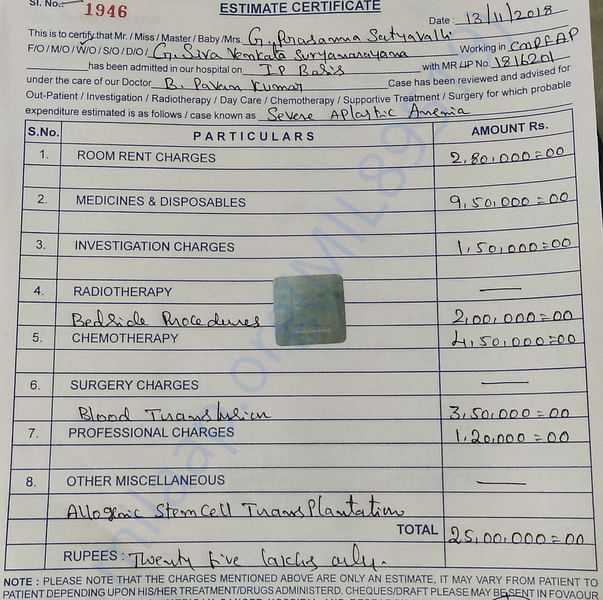 Sl. No.: 1946
ESTIMATE CERTIFICATE
Date : 13/11/2018
This is to certify that Mr. / Miss / Master / Baby / Mrs. G. Prasanna Satyavalli
F/O / M/O / W/O / S/O / D/O / G. Siva Venkata Suryanarayana Working in CMPFAP
has been admitted in our hospital on IP Basis with MR I/P No. 1816201
under the care of our Doctor B. Pavan Kumar Case has been reviewed and advised for
Out-Patient / Investigation / Radiotherapy / Day Care / Chemotherapy / Supportive Treatment / Surgery for which probable
expenditure estimated is as follows / case known as Severe Aplastic Anemia
S.No. PARTICULARS AMOUNT Rs.
1. ROOM RENT CHARGES 2,80,000=00
2. MEDICINES & DISPOSABLES 9,50,000=00
3. INVESTIGATION CHARGES 1,50,000=00
4. RADIOTHERAPY —
Bedside Procedures 2,00,000=00
5. CHEMOTHERAPY 4,50,000=00
6. SURGERY CHARGES —
Blood Transfusion 3,50,000=00
7. PROFESSIONAL CHARGES 1,20,000=00
8. OTHER MISCELLANEOUS —
Allogenic Stem Cell Transplantation
TOTAL 25,00,000=00
RUPEES : Twenty five lakhs only.
NOTE : PLEASE NOTE THAT THE CHARGES MENTIONED ABOVE ARE ONLY AN ESTIMATE, IT MAY VARY FROM PATIENT TO
PATIENT DEPENDING UPON HIS/HER TREATMENT/DRUGS ADMINISTERD. CHEQUES/DRAFT PLEASE MAY BE SENT IN FOVAOUR